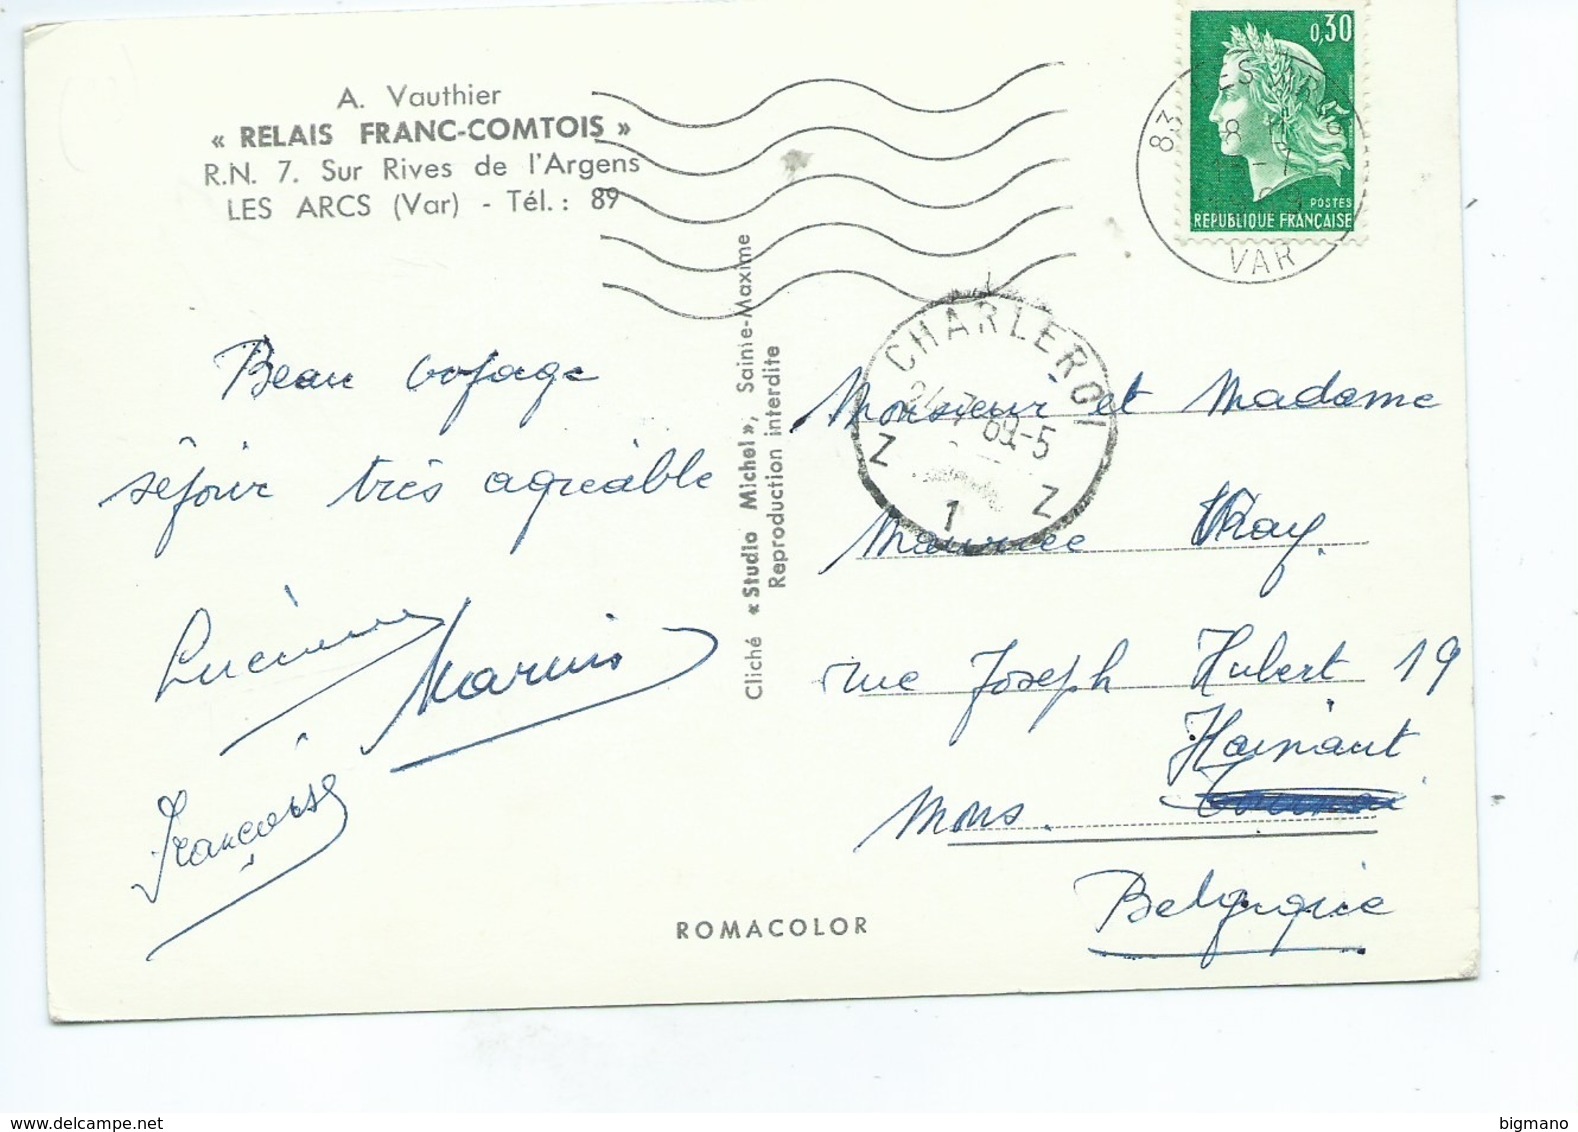 A. Vauthier
« RELAIS FRANC-COMTOIS »
R.N. 7. Sur Rives de l'Argens
LES ARCS (Var) - Tél. : 89
0,30
POSTES
REPUBLIQUE FRANÇAISE
83 LES ARCS
VAR
CHARLEROI
24-7 69-5
Z 1 Z
Beau voyage
séjour très agréable
Lucienne
Marius
Françoise
Cliché « Studio Michel », Sainte-Maxime
Reproduction interdite
Monsieur et Madame
Maurice Vray.
rue Joseph Hubert 19
Hainaut
Mons.
Belgique
ROMACOLOR
delcampe.net
bigmano